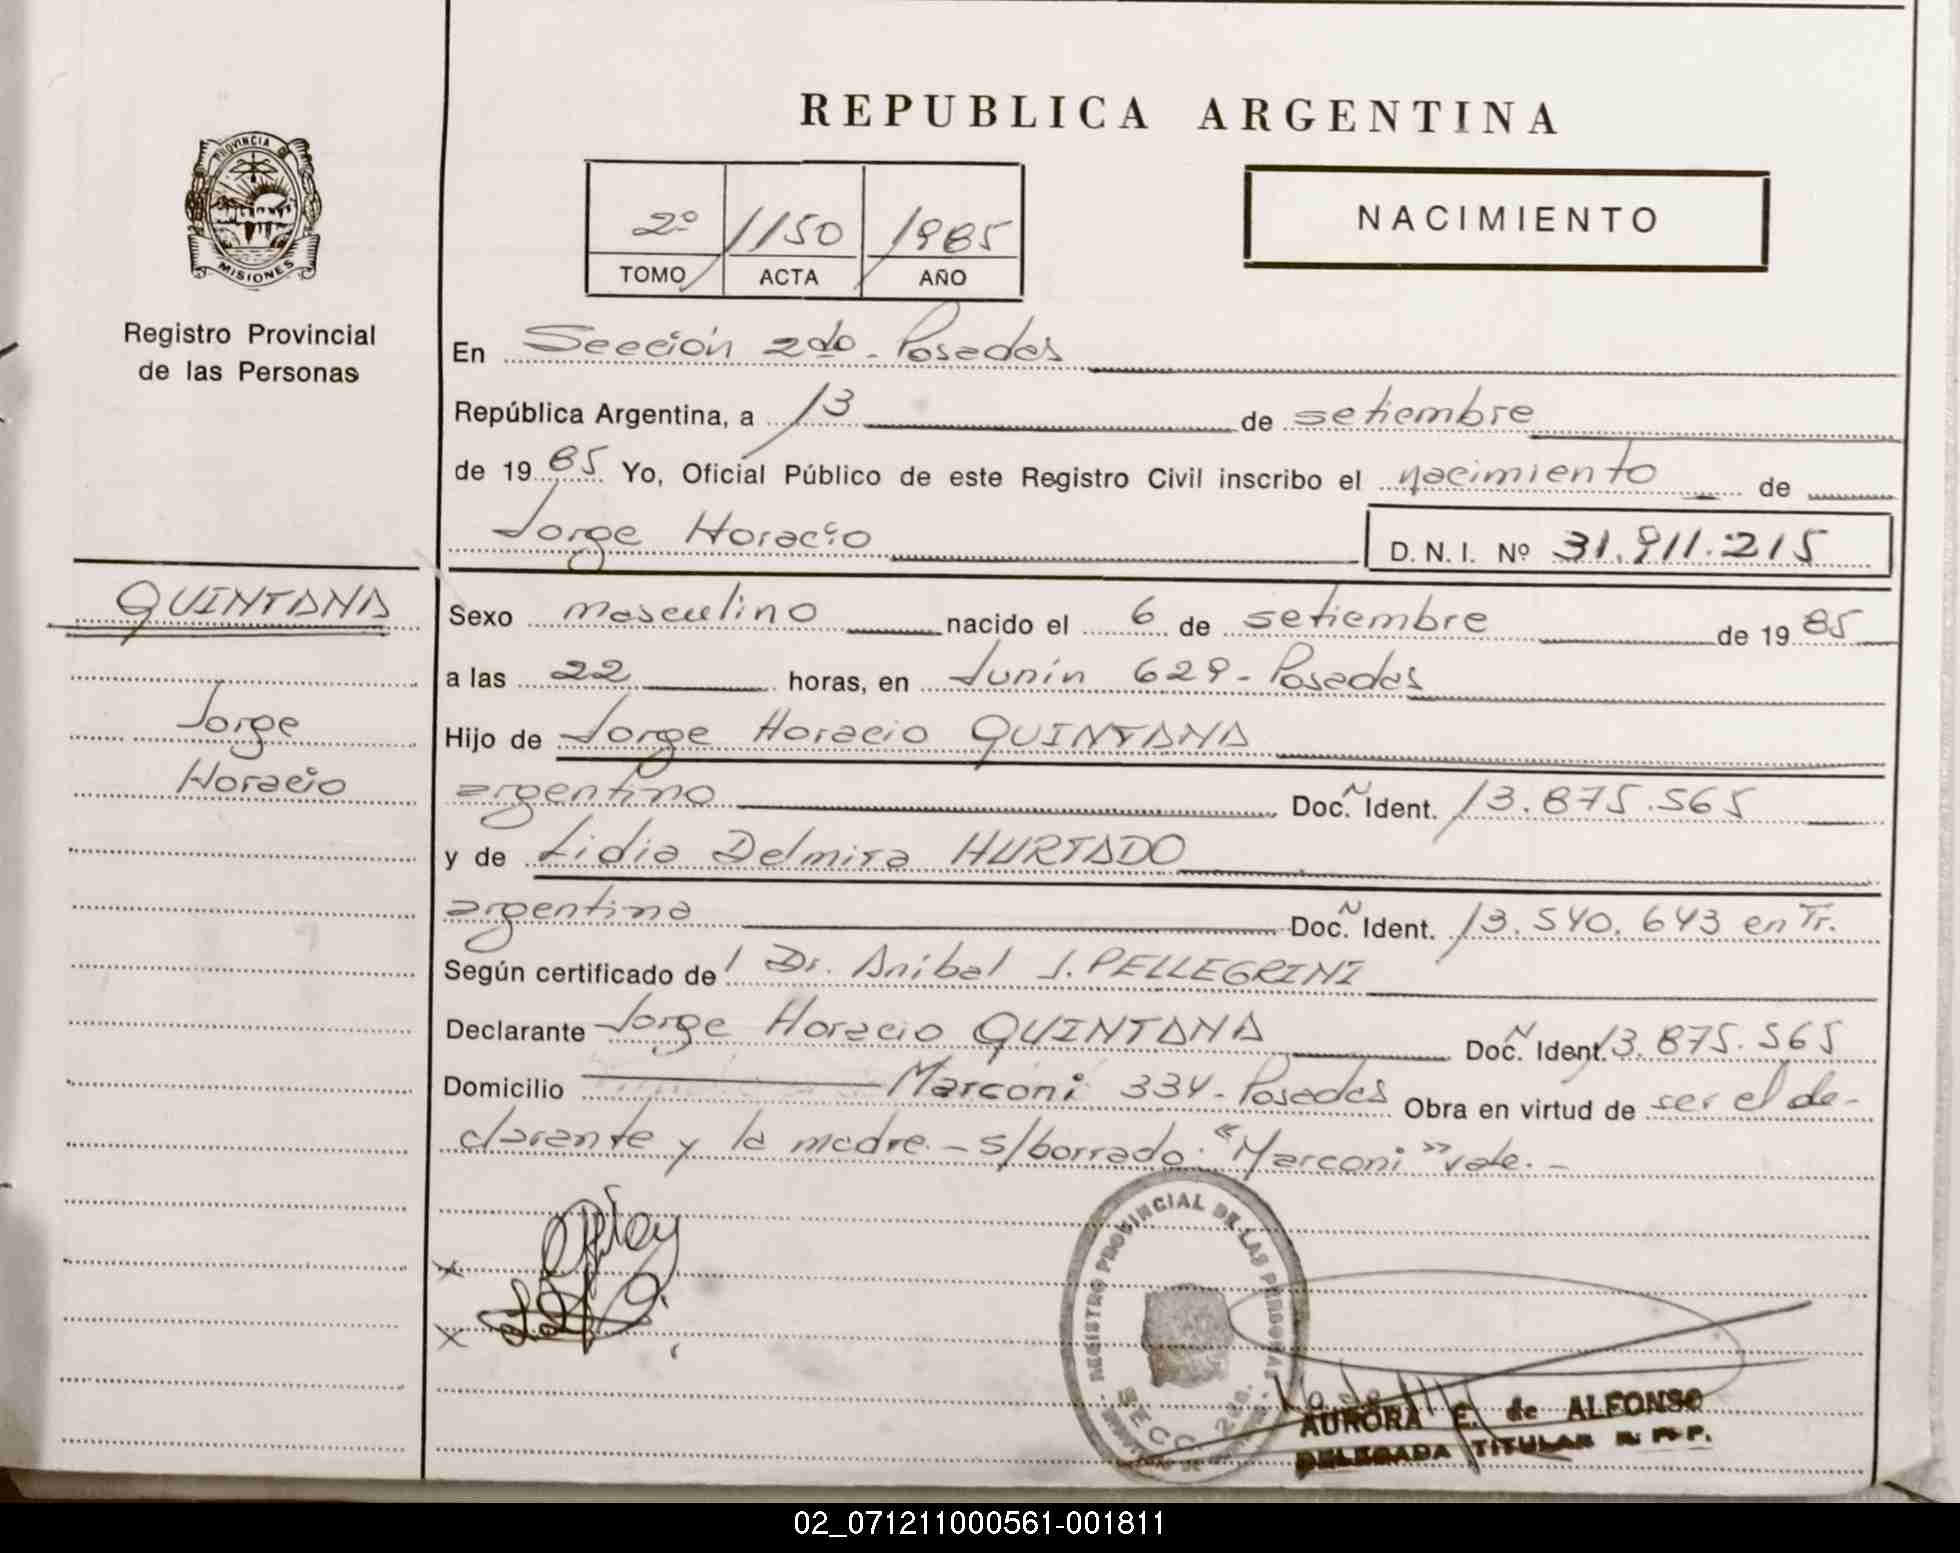 REPUBLICA ARGENTINA
PROVINCIA DE
MISIONES
Registro Provincial
de las Personas
2º 1150 1985
TOMO ACTA AÑO
NACIMIENTO
En Sección 2da - Posadas
República Argentina, a 13 de setiembre
de 19 85 Yo, Oficial Público de este Registro Civil inscribo el nacimiento de
Jorge Horacio D. N. I. Nº 31.911.215
QUINTANA
Jorge
Horacio
Sexo masculino nacido el 6 de setiembre de 19 85
a las 22 horas, en Junín 629 - Posadas
Hijo de Jorge Horacio QUINTANA
argentino Doc. Ident. 13.875.565
y de Lidia Delmira HURTADO
argentina Doc. Ident. 13.540.643 en Tr.
Según certificado del Dr. Aníbal J. PELLEGRINI
Declarante Jorge Horacio QUINTANA Doc. Ident. 13.875.565
Domicilio Marconi 334 - Posadas Obra en virtud de ser el de-
clarante y la madre. - s/borrado: "Marconi" vale. -
x
x
REGISTRO PROVINCIAL DE LAS PERSONAS
SECC. 2da.
AURORA E. de ALFONSO
DELEGADA TITULAR R. P. P.
02_071211000561-001811